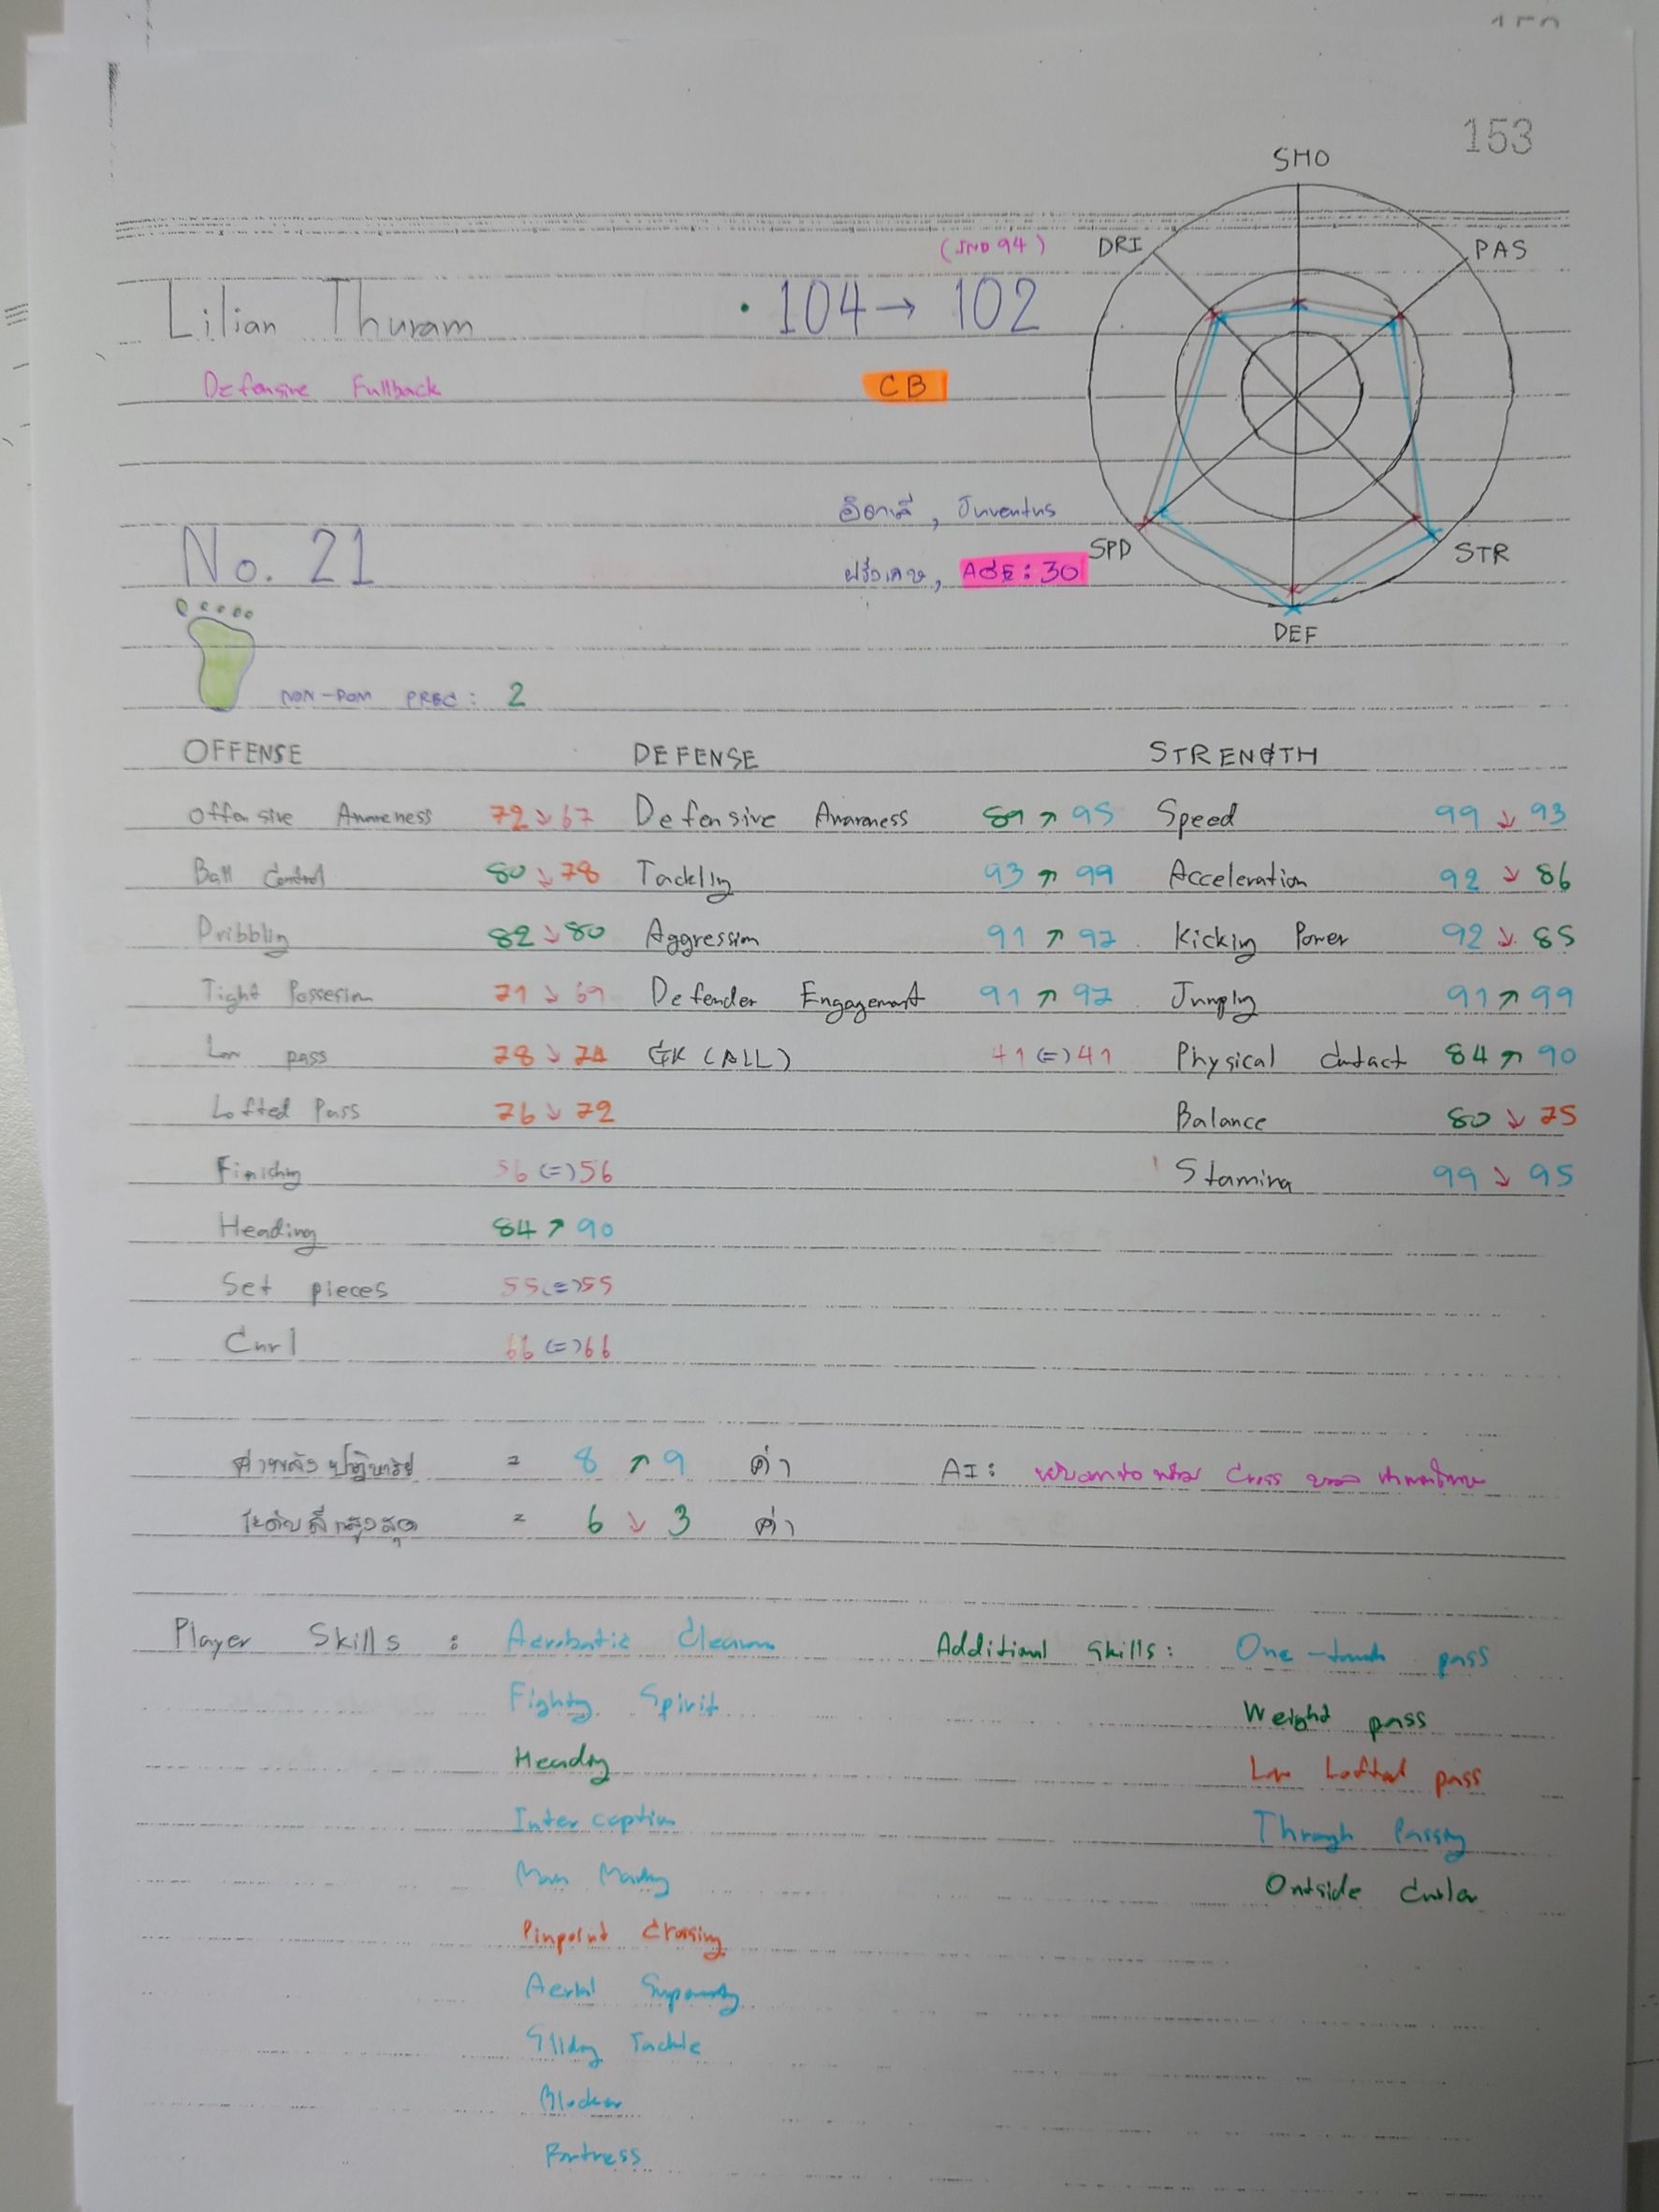 153
SHO
DRI
PAS
SPD
STR
DEF
(IND 94)
Lilian Thuram
· 104 → 102
Defensive Fullback
CB
อิตาลี, Juventus
No. 21
ฝรั่งเศส, AGE: 30
NON-DOM PREC: 2
OFFENSE DEFENSE STRENGTH
Offensive Awareness 72 ↘ 67 Defensive Awareness 89 ↗ 95 Speed 99 ↘ 93
Ball Control 80 ↘ 78 Tackling 93 ↗ 99 Acceleration 92 ↘ 86
Dribbling 82 ↘ 80 Aggression 91 ↗ 97 Kicking Power 92 ↘ 85
Tight Possesion 71 ↘ 69 Defender Engagement 91 ↗ 97 Jumping 91 ↗ 99
Low pass 78 ↘ 74 GK (ALL) 41 (=) 41 Physical Contact 84 ↗ 90
Lofted Pass 76 ↘ 72 Balance 80 ↘ 75
Finishing 56 (=) 56 Stamina 99 ↘ 95
Heading 84 ↗ 90
Set pieces 55 (=) 55
Curl 66 (=) 66
ค่าพลังปาฏิหาริย์ = 8 ↗ 9 ค่า AI: Cross
ระดับสีสูงสุด = 6 ↘ 3 ค่า
Player Skills : Acrobatic Clearance Additional Skills: One-touch pass
Fighting Spirit Weight pass
Heading Low Lofted pass
Interception Through Passing
Man Marking Outside Curler
Pinpoint Crossing
Aerial Superiority
Sliding Tackle
Blocker
Fortress